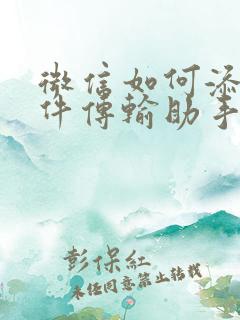 微信如何添
件傳輸助手
彭保紅
未经同意禁止转载